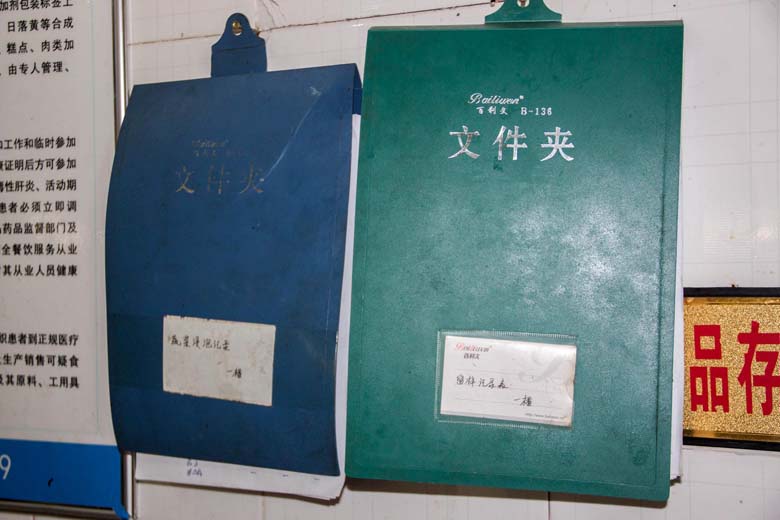 加剂包装标签上
日落黄等合成
糕点、肉类加
由专人管理、
和工作和临时参加
康证明后方可参加
毒性肝炎、活动期
患者必须立即调
品药品监督部门及
全餐饮服务从业
对其从业人员健康
织患者到正规医疗
生产销售可疑食
及其原料、工用具
9
Bailiwen
百利文 B-
文件夹
蔬菜浸泡记录
一楼
Bailiwen®
百利文 B-136
文件夹
Bailiwen®
百利文
留样记录表
一楼
品存